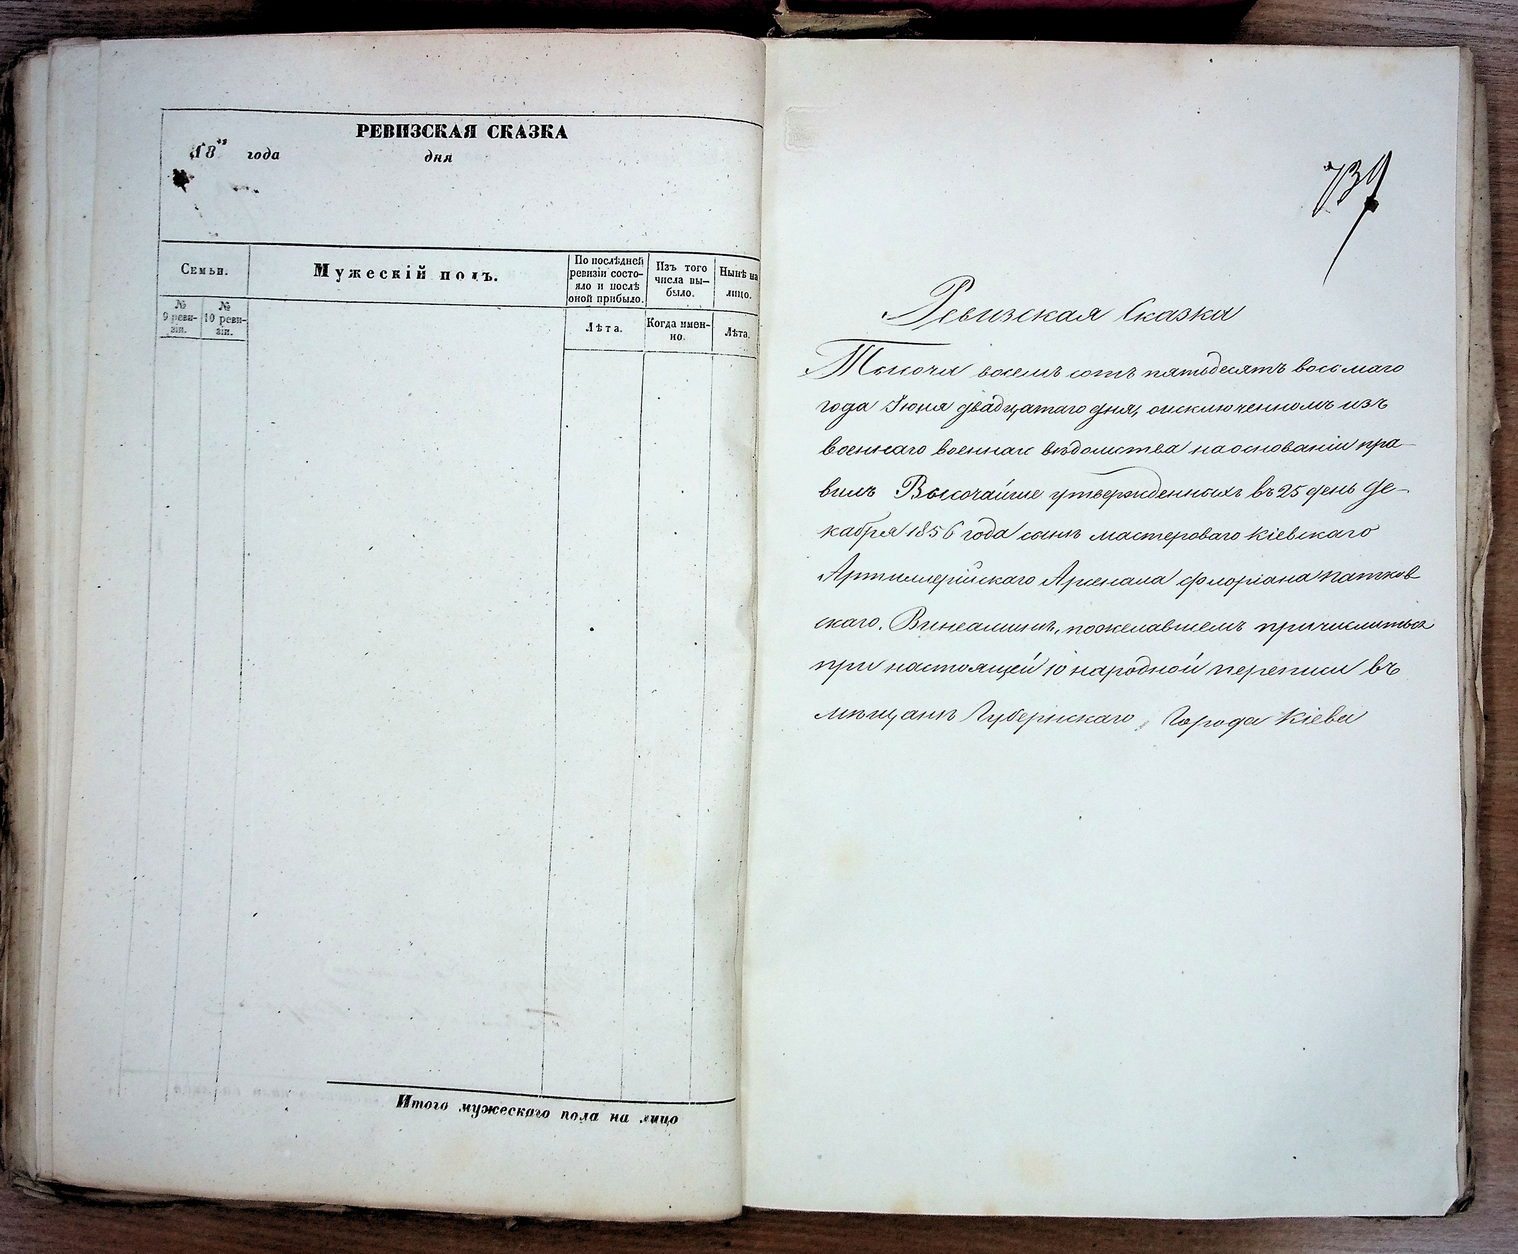 РЕВИЗСКАЯ СКАЗКА
18 года дня
Семьи.
Мужескій полъ.
По послѣдней
ревизіи состо-
яло и послѣ
оной прибыло.
Изъ того
числа вы-
было.
Нынѣ на
лицо.
№
9 реви-
зіи.
№
10 реви-
зіи.
Лѣта.
Когда имен-
но.
Лѣта.
Итого мужескаго пола на лицо
739
Ревизская Сказка
Тысяча восемъ сотъ пятьдесятъ восьмаго
года Іюня двадцатаго дня, о исключенномъ изъ
военнаго вѣдомства на основаніи пра-
вилъ Высочайше утвержденныхъ въ 25 день де-
кабря 1856 года сынѣ мастероваго Кіевскаго
Артиллерійскаго Арсенала Флоріана Патков
скаго. Винеаминѣ, пожелавшемъ причислиться
при настоящей 10 народной переписи въ
мѣщане Губернскаго Города Кіева